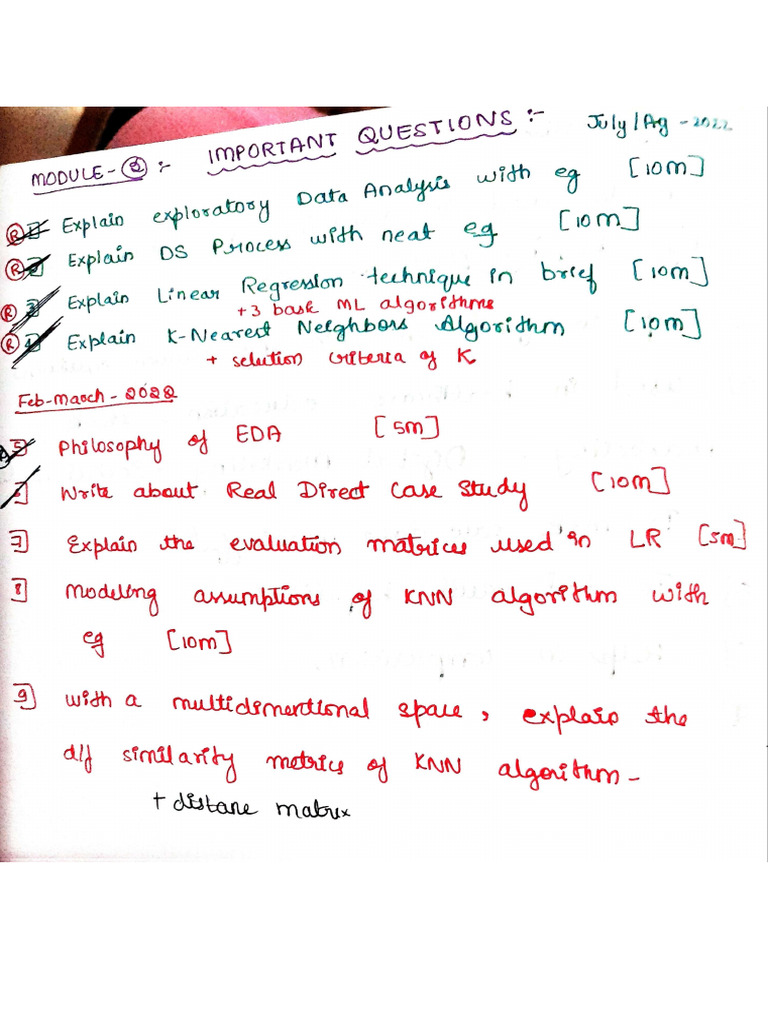 MODULE-② :- IMPORTANT QUESTIONS :- July/Ag - 2022
Ⓡ 1] Explain exploratory Data Analysis with eg [10m]
Ⓡ 2] Explain DS Process with neat eg [10m]
Ⓡ 3] Explain Linear Regression technique in brief [10m]
+ 3 basic ML algorithms
Ⓡ 4] Explain K-Nearest Neighbors Algorithm [10m]
+ selution criteria of K
Feb-march-2022
5] Philosophy of EDA [5m]
6] Write about Real Direct Case Study [10m]
7] Explain the evaluation matrices used in LR [5m]
8] Modeling assumptions of KNN algorithm with
eg [10m]
9] with a multidimentional space, explain the
d/f similarity metrics of KNN algorithm-
+ distane matrix